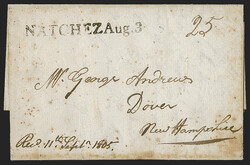 NATCHEZ Aug. 3
25
Mr. George Andrews
Dover
New Hampshire
Recd. 11th Septr. 1805